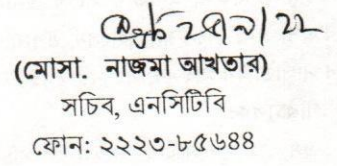 ২৫/৯/২২
(মোসা. নাজমা আখতার)
সচিব, এনসিটিবি
ফোন: ২২২৩-৮৫৬৪৪